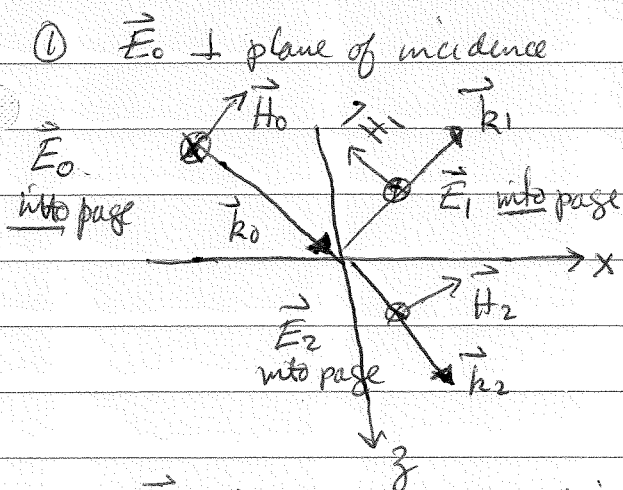 ① E⃗₀ ⊥ plane of incidence
H⃗₀
H⃗₁
k⃗₁
E⃗₀
into page
E⃗₁ into page
k⃗₀
x
H⃗₂
E⃗₂
into page
k⃗₂
z